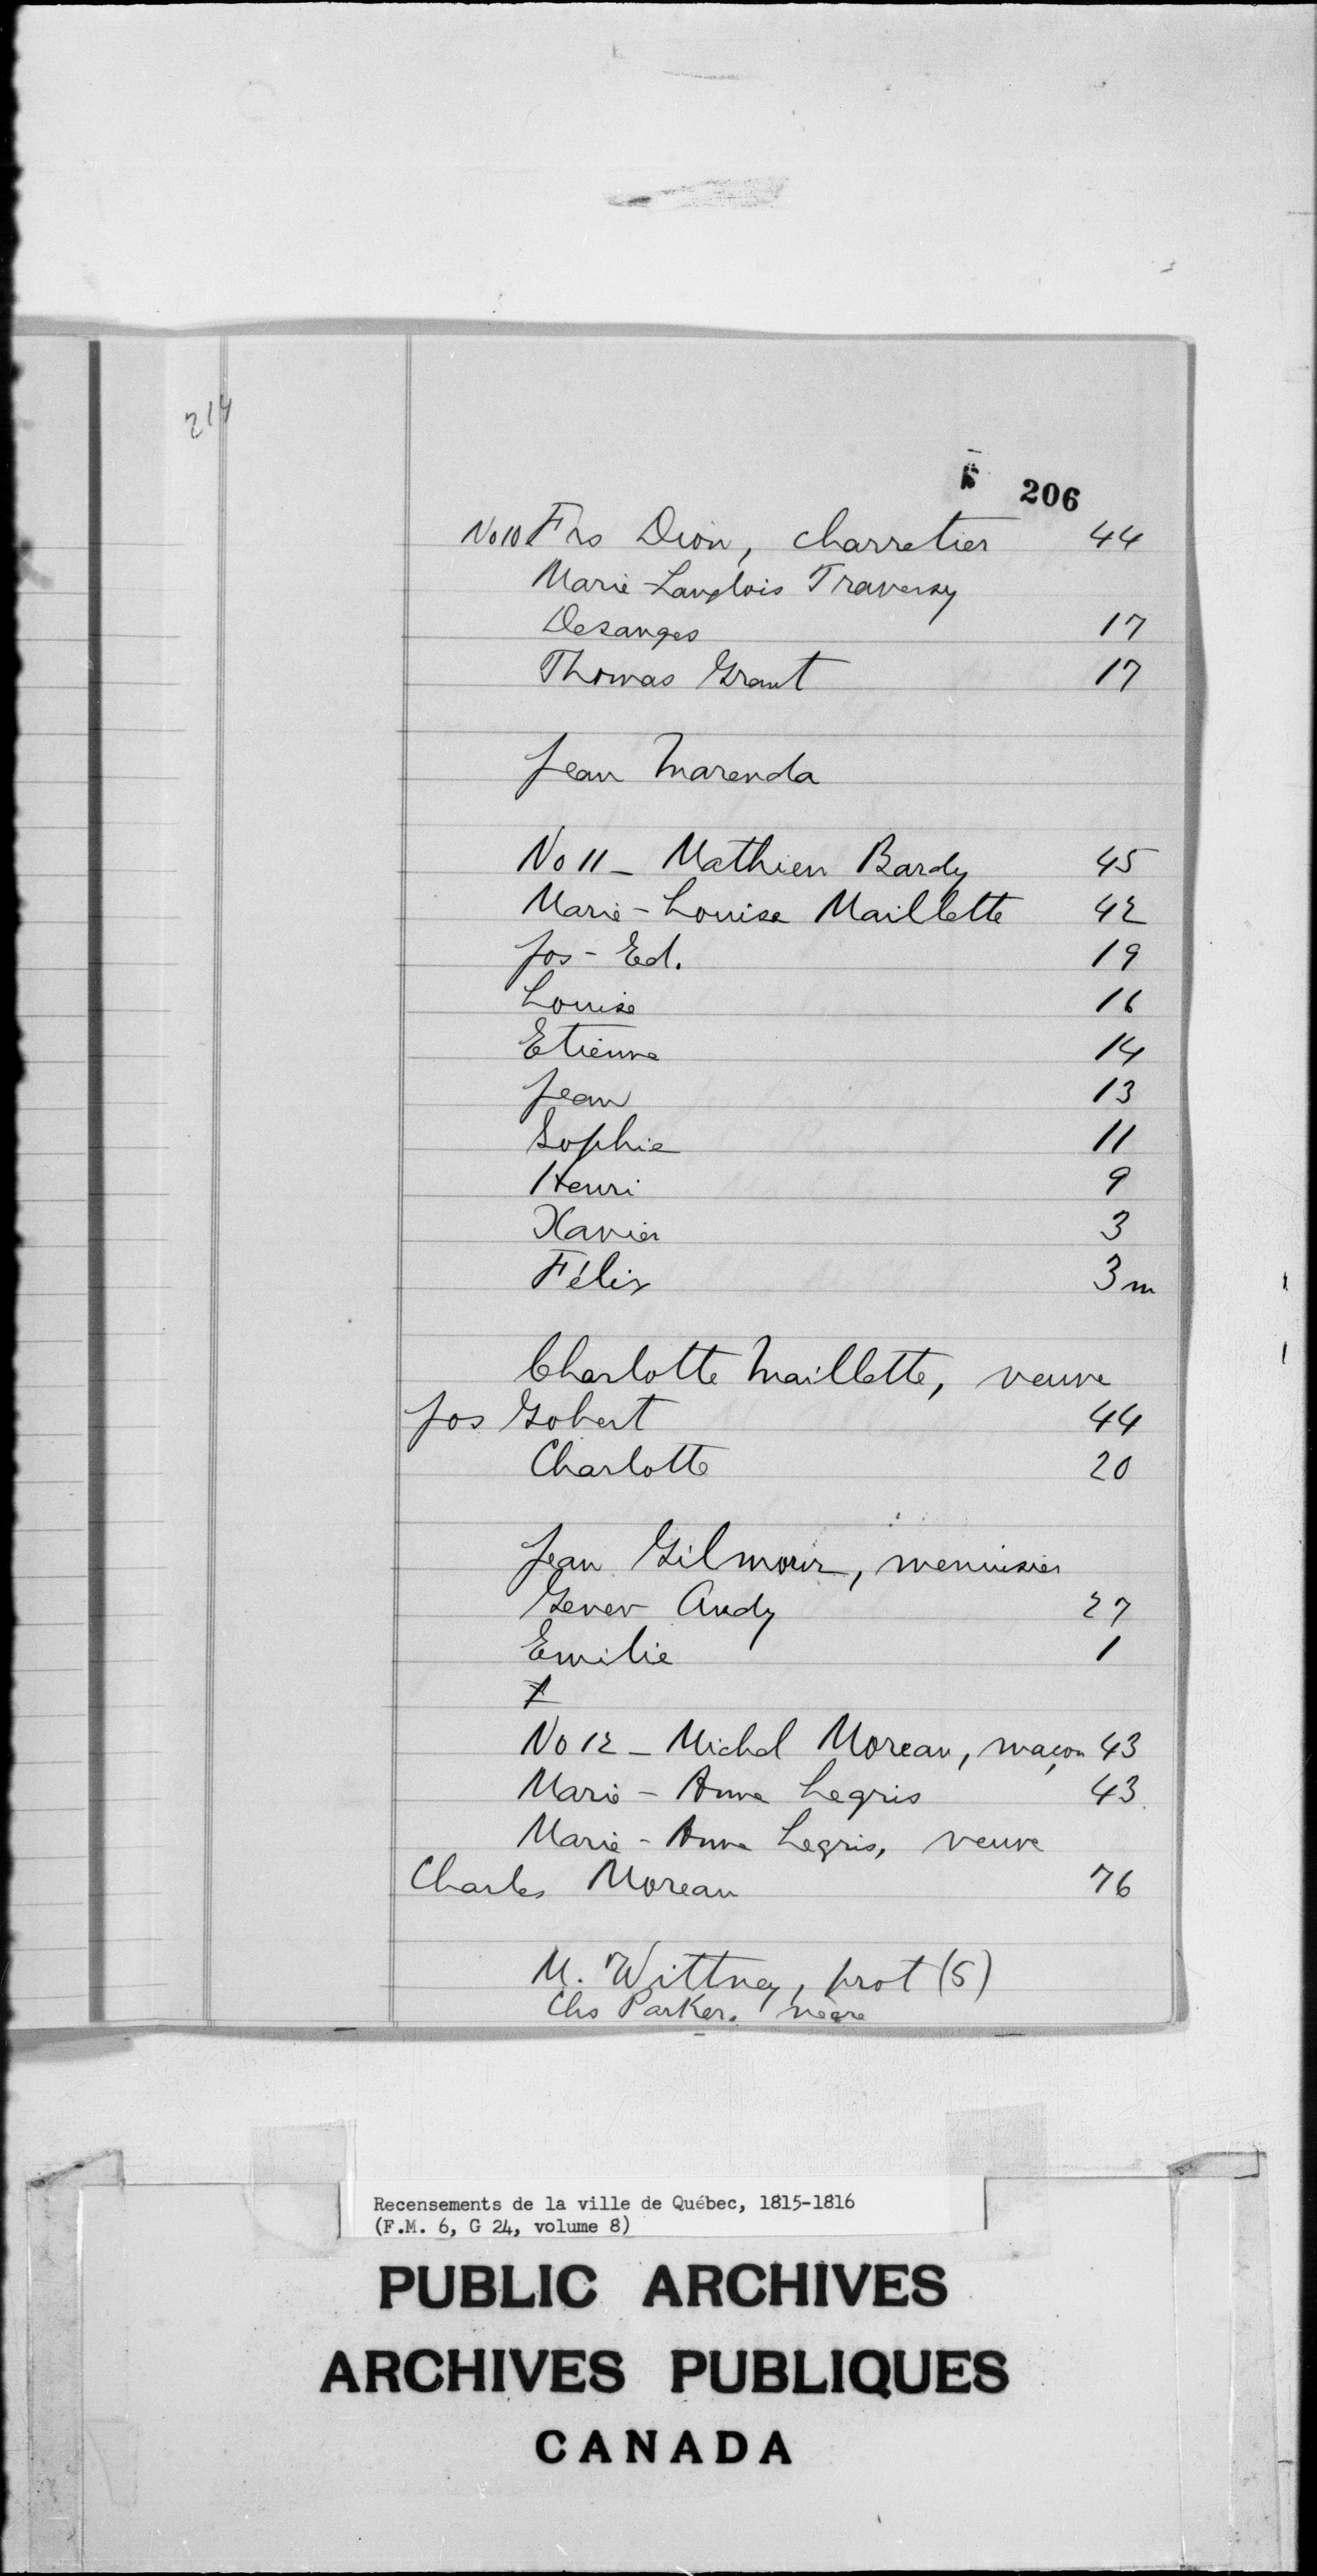 214
206
No 10 Frs Dion, charretier 44
Marie-Langlois Traversy
Desanges 17
Thomas Grant 17
Jean Marenda
No 11 - Mathieu Bardy 45
Marie-Louise Maillette 42
Jos-Ed. 19
Louise 16
Etienne 14
Jean 13
Sophie 11
Henri 9
Xavier 3
Félix 3 m
Charlotte Maillette, veuve
Jos Gobert 44
Charlotte 20
Jean Gilmour, menuisier
Genev Audy 27
Emilie 1
No 12 - Michel Moreau, maçon 43
Marie-Anne Legris 43
Marie-Anne Legris, veuve
Charles Moreau 76
M. Wittney, prot (5)
Chs Parker. nègre
Recensements de la ville de Québec, 1815-1816
(F.M. 6, G 24, volume 8)
PUBLIC ARCHIVES
ARCHIVES PUBLIQUES
CANADA